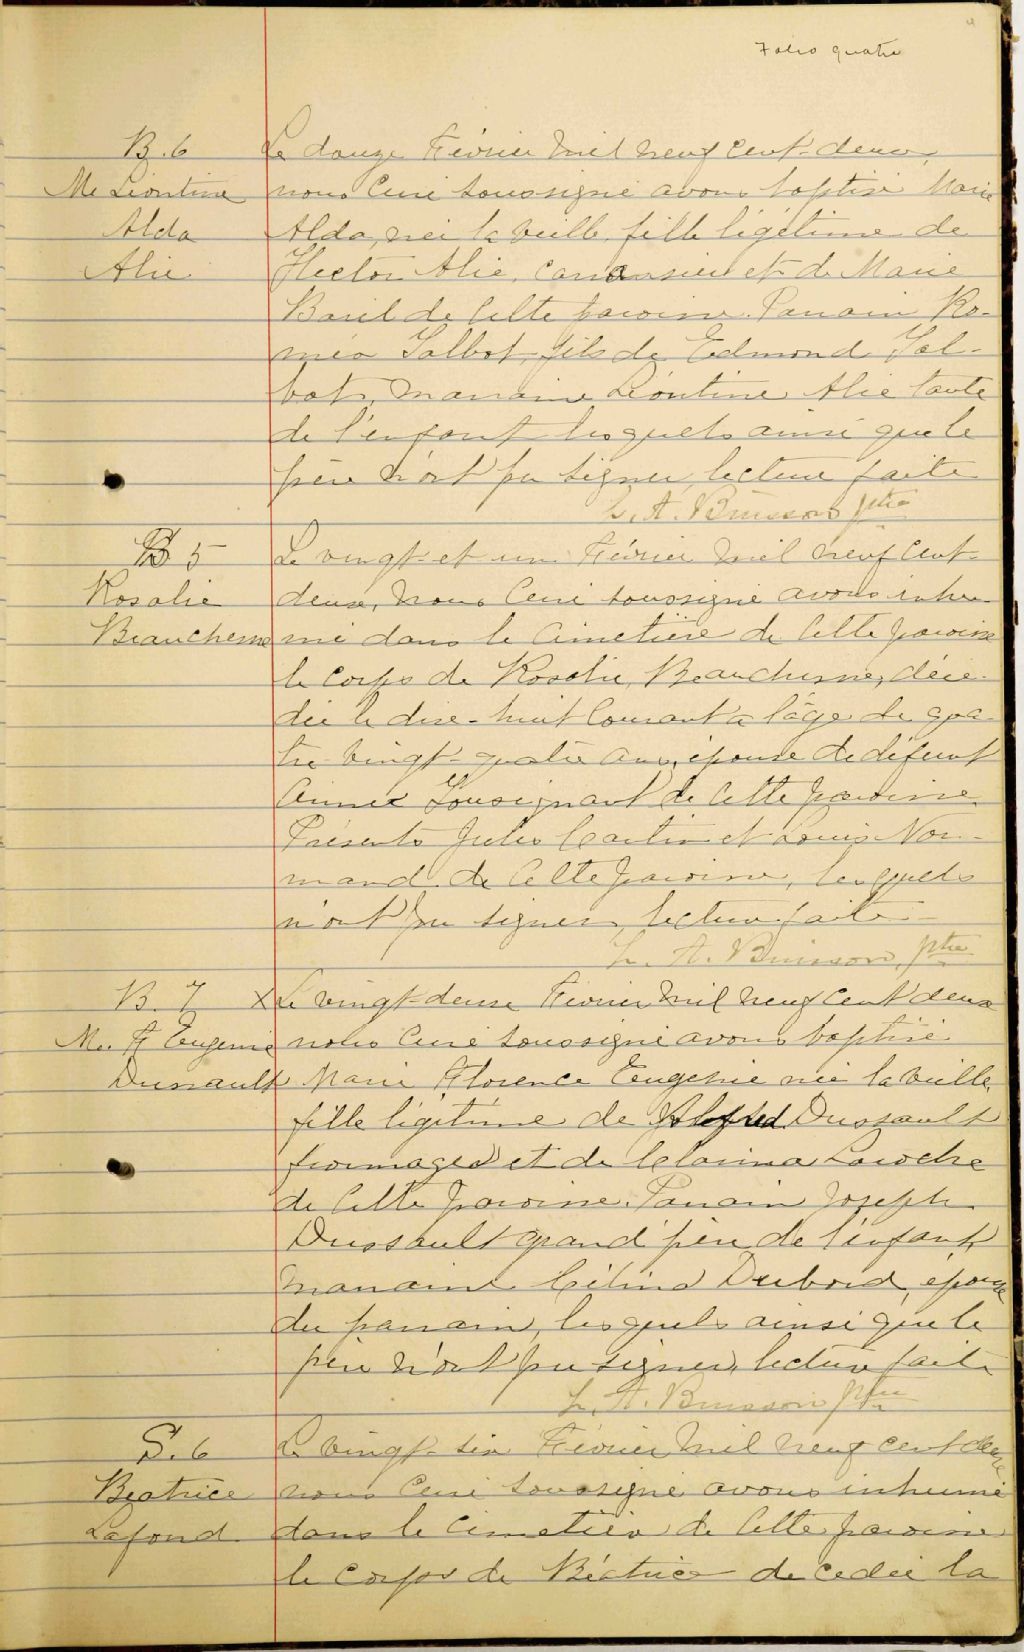 Folio quatre
B. 6
Me Léontine
Alda
Alie
Le douze Février mil neuf cent-deux,
nous Curé soussigné avons baptisé Marie
Alda, née la veille, fille légitime de
Hector Alie, et de Marie
Baril de cette paroisse. Parrain Ro-
méo Talbot, fils de Edmond Tal-
bot, marraine Léontine Alie tante
de l'enfant lesquels ainsi que le
père n'ont pu signer, lecture faite
L. A. Buisson ptre
5
Rosalie
Beauchesne
Le vingt-et un Février mil neuf cent-
deux, nous Curé soussigné avons inhu-
mé dans le Cimetière de cette paroisse
le corps de Rosalie Beauchesne, décé-
dée le dix-huit courant a l'âge de qua-
tre-vingt-quatre ans, épouse de défunt
de cette paroisse.
Présents Jules et Louis Nor-
mand de cette paroisse, lesquels
n'ont pu signer, lecture faite
L. A. Buisson, ptre
B. 7 X
Me F Eugenie
Dussault
Le vingt-deux Février mil neuf cent deux
nous Curé soussigné avons baptisé
Marie Florence Eugenie née la veille,
fille légitime de Alfred Dussault
fromager et de Clarina Laroche
de cette paroisse. Parrain Joseph
Dussault grand'père de l'enfant
marraine Célina Dubord, épouse
du parrain, lesquels ainsi que le
père n'ont pu signer, lecture faite
L. A. Buisson ptre
S. 6
Beatrice
Lafond
Le vingt-six Février mil neuf cent deux
nous Curé soussigné avons inhumé
dans le Cimetière de cette paroisse
le corps de Béatrice decedée la